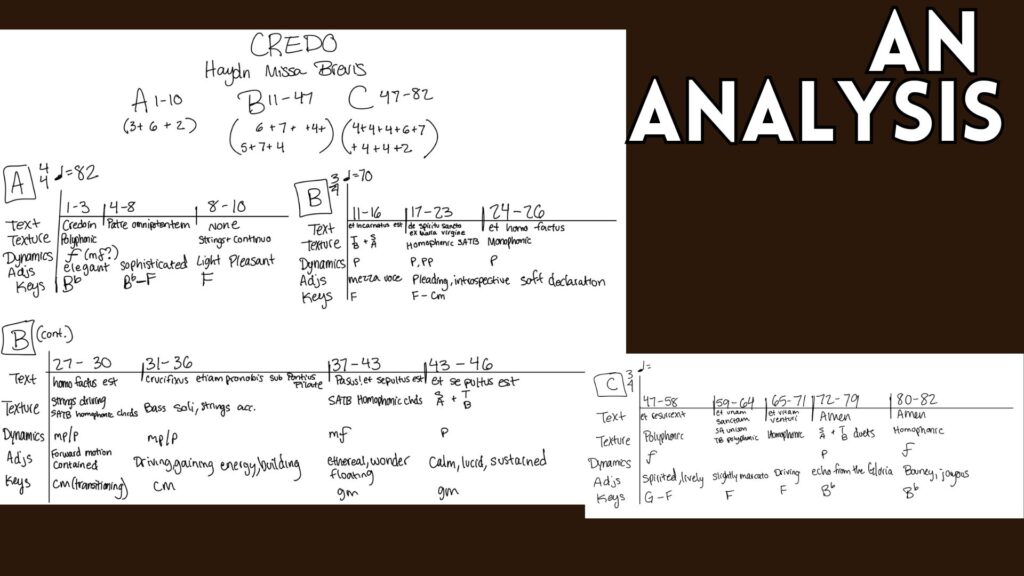 AN
ANALYSIS
CREDO
Haydn Missa Brevis
A 1-10 B 11-47 C 47-82
(3+6+2) (6+7+ +4+ (4+4+4+6+7
5+7+4) +4+4+2)
A 4/4 ♩=82
1-3 4-8 8-10
Text Credo in Patre omnipotentem None
Texture Polyphonic Strings + Continuo
Dynamics f (mf?)
Adjs elegant sophisticated Light Pleasant
Keys Bb Bb-F F
B 3/4 ♩=70
11-16 17-23 24-26
Text et incarnatus est de spiritu sancto ex maria virgine et homo factus
Texture T B + S A Homophonic SATB Monophonic
Dynamics P P, PP P
Adjs mezza voce Pleading, introspective soft declaration
Keys F F-Cm
B (cont.)
27-30 31-36 37-43 43-46
Text homo factus est crucifixus etiam pronobis sub Pontius Pilate Pasus! et sepultus est et sepultus est
Texture strings driving SATB homophonic chrds Bass soli, strings acc. SATB Homophonic chds S A + T B
Dynamics mp/p mp/p mf P
Adjs Forward motion Contained Driving, gaining energy, building ethereal, wonder floating Calm, lucid, sustained
Keys cm (transitioning) cm gm gm
C 3/4 ♩=
47-58 59-64 65-71 72-79 80-82
Text et resurrexit et unam sanctam et vitam venturi Amen Amen
Texture Polyphonic SA unison TB polyphonic Homophonic S A + T B duets Homophonic
Dynamics f P f
Adjs spirited, lively slightly marcato Driving echo from the Gloria Bouncy, joyous
Keys G-F F F Bb Bb